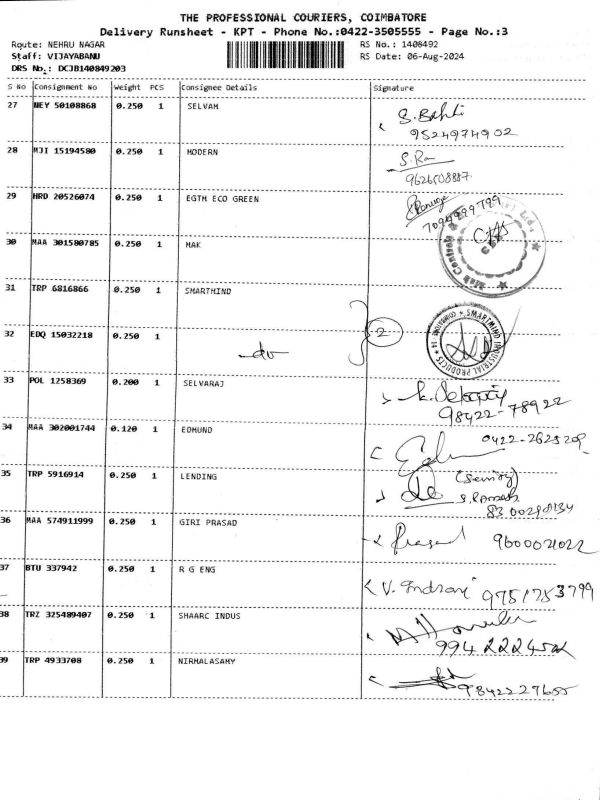 THE PROFESSIONAL COURIERS, COIMBATORE
Delivery Runsheet - KPT - Phone No.:0422-3505555 - Page No.:3
Route: NEHRU NAGAR RS No.: 1408492
Staff: VIJAYABANU RS Date: 06-Aug-2024
DRS No.: DCJB140849203
S No Consignment No Weight PCS Consignee Details Signature
27 NEY 50108868 0.250 1 SELVAM S.
9524974902
28 MJI 15194580 0.250 1 MODERN S.Ra
9626508887
29 HRD 20526074 0.250 1 EGTH ECO GREEN
7094999799
30 MAA 301580785 0.250 1 MAK
31 TRP 6816866 0.250 1 SMARTMIND
32 EDQ 15032218 0.250 1 -do- 2
SMARTMIND INDUSTRIAL PRODUCTS
33 POL 1258369 0.200 1 SELVARAJ
98422-78922
34 MAA 302001744 0.120 1 EDMUND
35 TRP 5916914 0.250 1 LENDING
36 MAA 574911999 0.250 1 GIRI PRASAD Prasad 9600021022
37 BTU 337942 0.250 1 R G ENG V. Indrani 9751753799
38 TRZ 325489407 0.250 1 SHAARC INDUS
39 TRP 4933708 0.250 1 NIRMALASAMY
9842227655